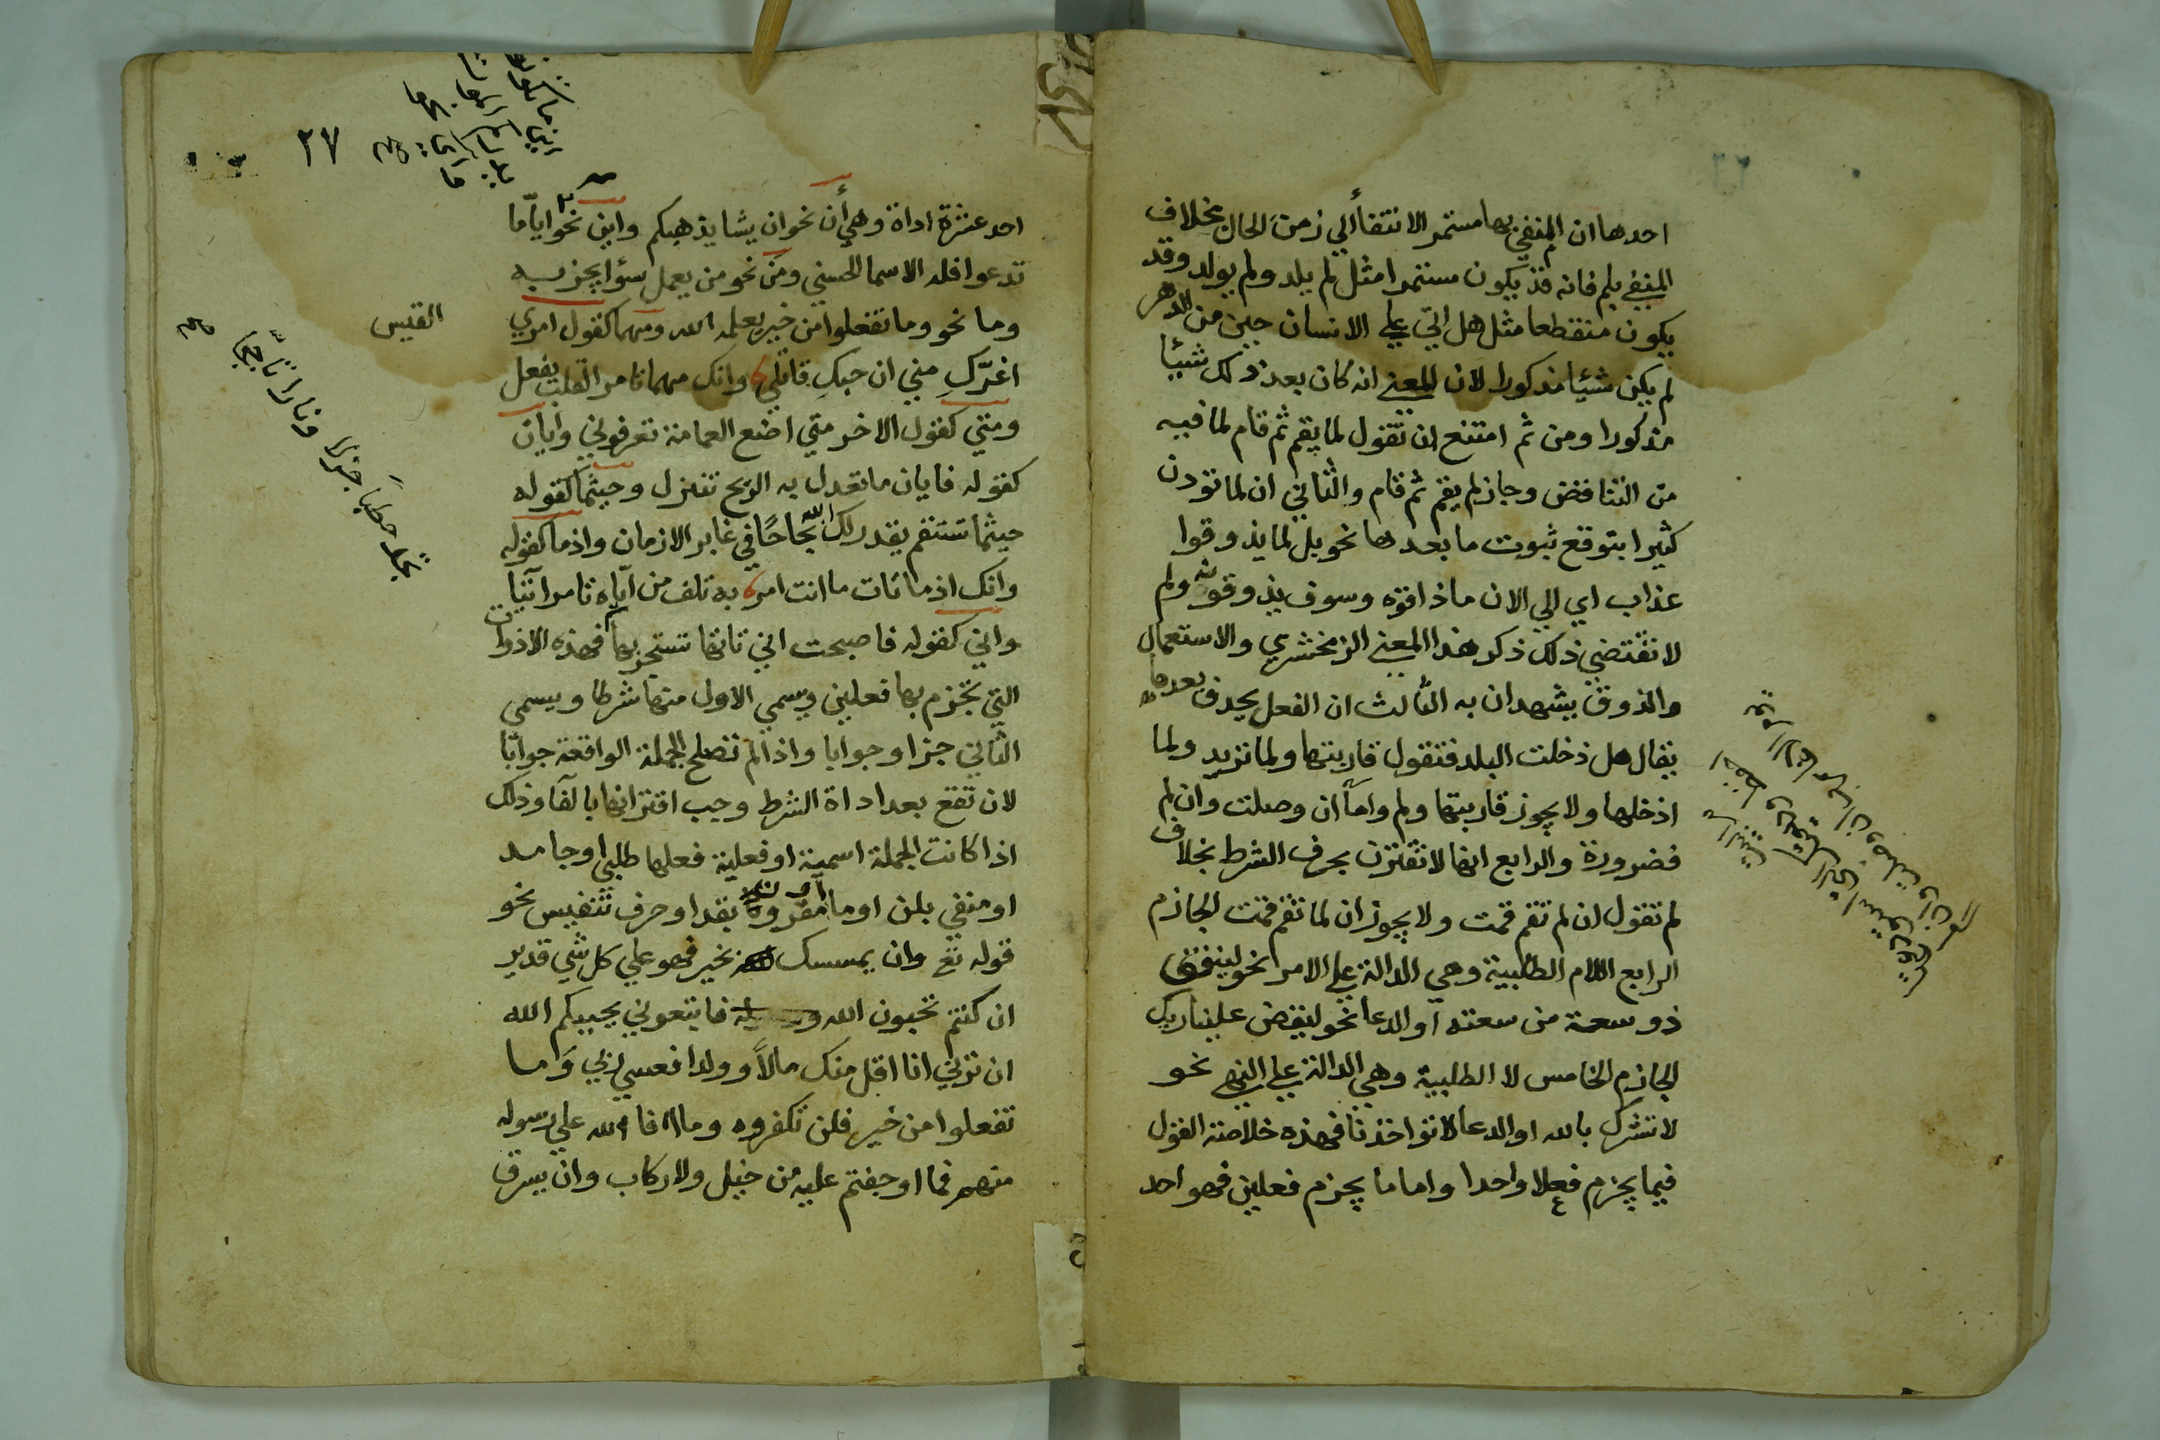 احدها ان المنفي بها مستمر الانتفأ الي زمن الحال بخلاف
المنفي بلم فانه قد يكون مستمرا مثل لم يلد ولم يولد وقد
يكون منقطعا مثل هل اتي علي الانسان حين من الدهر
لم يكن شيئا مذكورا لان المعني انه كان بعد ذلك شيئا
مذكورا ومن ثم امتنع ان تقول لما يقم ثم قام لما فيه
من التناقض وجاز لم يقم ثم قام والثاني ان لما تؤذن
كثيرا بتوقع ثبوت ما بعدها نحو بل لما يذوقوا
عذاب اي الي الان ما ذاقوه وسوف يذوقونه ولم
لا تقتضي ذلك ذكر هذا المعني الزمخشري والاستعمال
والذوق يشهدان به الثالث ان الفعل يحذف بعدها
يقال هل دخلت البلد فتقول قاربتها ولما تريد ولما
ادخلها ولا يجوز قاربتها ولم واما ان وصلت وان لم
فضرورة والرابع انها لا تقترن بحرف الشرط بخلاف
لم تقول ان لم تقم قمت ولا يجوز ان لما تقم قمت الجازم
الرابع اللام الطلبية وهي الدالة علي الامر نحو لينفق
ذو سعة من سعته او الدعا نحو ليقض علينا ربك
الجازم الخامس لا الطلبية وهي الدالة علي النهي نحو
لا تشرك بالله او الدعا لا تواخذنا فهذه خلاصة القول
فيما يجزم فعلا واحدا واما ما يجزم فعلين فهو احد
٢٧
احد عشرة اداة وهي أن نحو ان يشا يذهبكم واين نحو اياما
تدعوا فله الاسما الحسني ومن نحو من يعمل سؤا يجز به
وما نحو وما تفعلوا من خير يعلمه الله ومهما كقول امري
القيس
اغرّكِ مني ان حبكِ قاتلي وانك مهما تامر القلب يفعل
ومتي كقول الاخر متي اضع العمامة تعرفوني وأيان
كقوله فايان ما تعدل به الريح تنزل وحيثما كقوله
حيثما تستقم يقدر لك الله نجاحًا في غابر الازمان واذما كقوله
وانك اذما تات ما انت امر به تلف من اياه تامر آتيا
واني كقوله فاصبحت اني تاتها تستجر بها فهذه الادوات
التي تجزم بها فعلين ويسمي الاول منها شرطا ويسمي
الثاني جزا وجوابا واذا لم تصلح الجملة الواقعة جوابا
لان تقع بعد اداة الشرط وجب اقترانها بالفا وذلك
اذا كانت الجملة اسمية او فعلية فعلها طلبي او جامد
او منفي بلن او ما او مقرونة بقد او حرف تنفيس نحو
قوله تع وان يمسسك بخير فهو علي كل شي قدير
ان كنتم تحبون الله فاتبعوني يحببكم الله
ان ترني انا اقل منك مالاً وولدا فعسي ربي وَما
تفعلوا من خير فلن تكفروه وما افا الله علي رسوله
منهم فما اوجفتم عليه من خيل ولا ركاب وان يسرق
تجد حطباً جزلا ونارا تأججا
صح